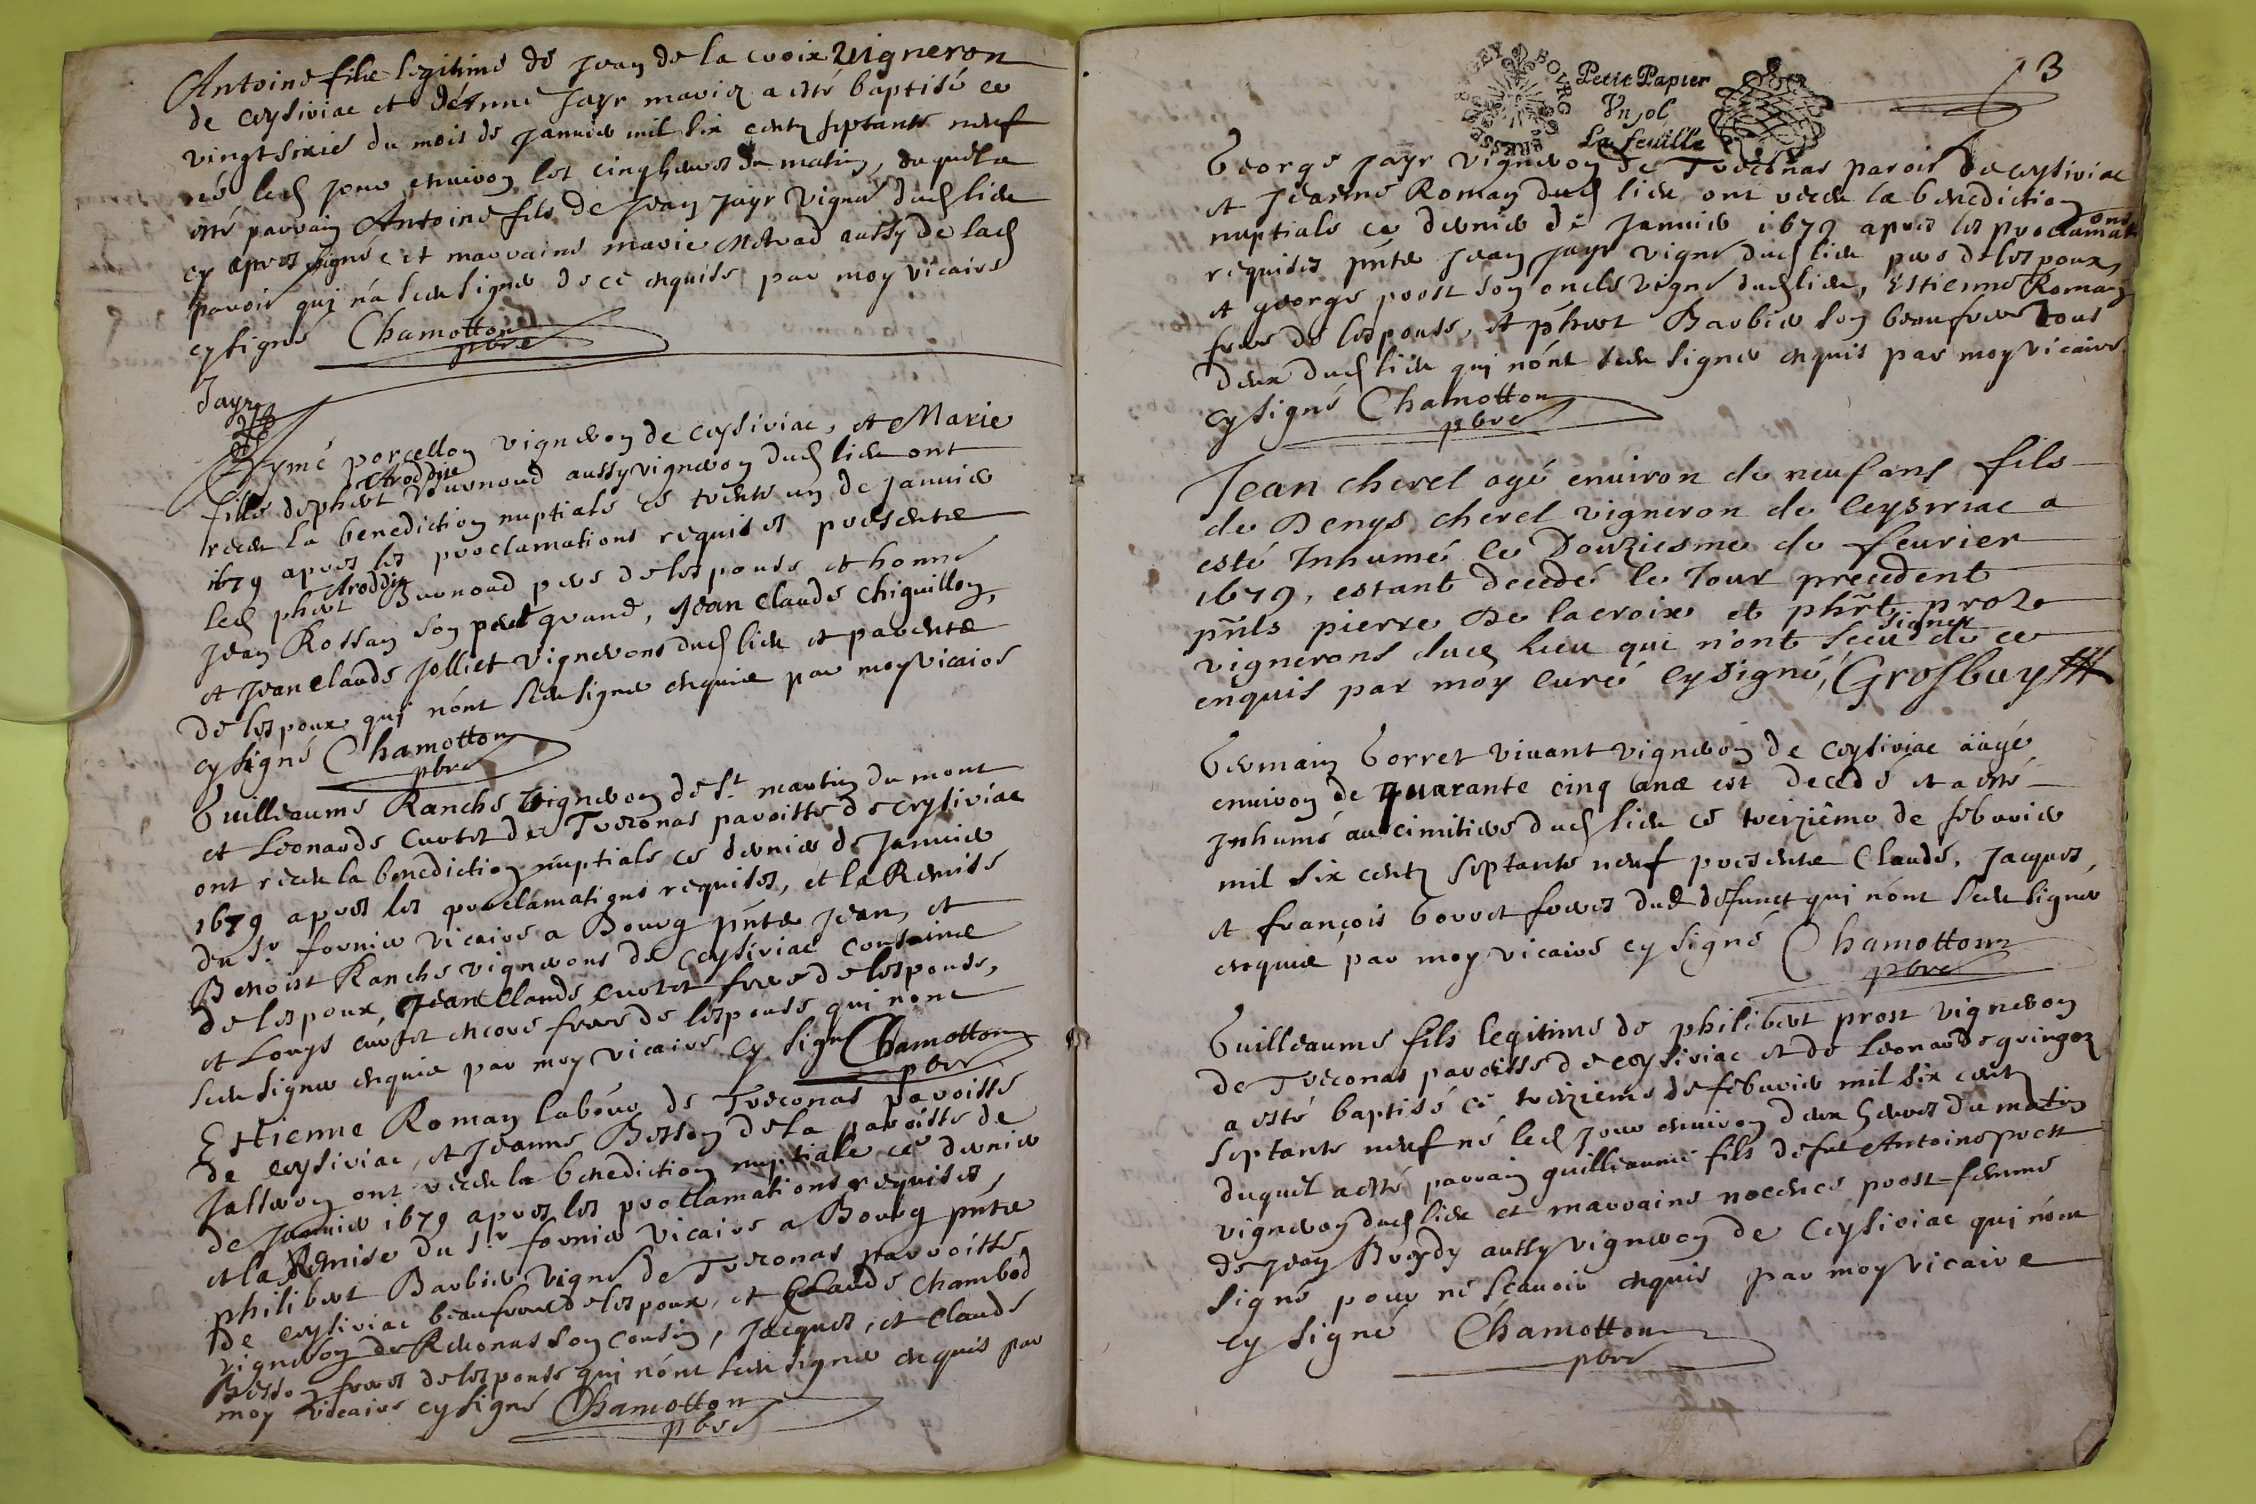 Antoine fils legitime de Jean de la croix vigneron
de ceysiriac et d'Anne Jayr mariez a esté baptisé ce
vingt sixié du mois de Januier mil six centz septante neuf
né led jour enuiron les cinq heures du matin, duquel a
esté parrain Antoine fils de Jean Jayr vigné dud lieu
cy apres signé et marraine marie aussy de lad
parois qui n'a sceu signer de ce enquise par moy vicaire
cy signé Chamotton
pbre
Jayr
Aymé porcellon vigneron de ceysiriac, et Marie
fille de phert Burnoud aussy vigneron dud lieu ont
receu la benediction nuptiale ce trente un de januier
1679 apres les proclamations requises presente
led phert Burnoud pere de lespouse et honné
Jean Rossan son pere grand, Jean Claude Chiguillon,
et Jean Claude Jolliet vignerons dud lieu et parente
de lespoux qui n'ont sceu signer enquis par moy vicaire
cy signé Chamotton
pbre
Guilleaume Ranche vigneron de St. martin du mont
et Leonarde Curtet de Treconas paroisse de ceysiriac
ont receu la benediction nuptiale ce dernier de Januier
1679 apres les proclamations requises, et la Remise
du Sr. fornier vicaire a Bourg pnte Jean, et
Benoist Ranche vignerons de Ceysiriac
de lespoux, Jean Claude Curtet frere de lespouse,
et Louys curtet encore frere de lespouse qui nont
sceu signer enquis par moy vicaire cy signé Chamotton
pbre
Estienne Roman labour de Treconas paroisse
de ceysiriac, et Jeanne Besson de la paroisse de
Jasseron ont receu la benediction nuptiale ce dernier
de Januier 1679 apres les proclamations requises,
et la Remise du Sr. fornier vicaire a Bourg pnte
philibert Barbier vigné de Treconas parroisse
de ceysiriac beaufrere de lespoux, et Claude Chambod
vigneron de Reuonas son cousin, Jacques, et Claude
Besson freres de lespouse qui n'ont sceu signer enquis par
moy vicaire cy signé Chamotton
pbre
BOURG
Petit Papier
Vn sol
La feuille
3
George Jayr vigneron de Treconas parois de ceysiriac
et Jeanne Roman dud lieu ont receu la benediction
nuptiale ce dernier de Januier 1679 apres les proclamations
requises pnte Jean Jayr vigné dud lieu pere de lespoux,
et george prost son oncle vigné dud lieu, Estienne Roman
frere de lespouse, et phert Barbier son beaufrere tous
deux dud lieu qui n'ont sceu signer enquis par moy vicaire
cy signé Chamotton
pbre
Jean cherel agé enuiron de neuf ans fils
de Denys cherel vigneron de ceysiriac a
esté Inhumé le Douziesme de feurier
1679, estant decedé le Jour precedent
pnts pierre De lacroix et phrt proz
vignerons dud lieu qui n'ont sceu signer de ce
enquis par moy curé cysigné, Grosbuy
Germain Gorret viuant vigneron de ceysiriac aagé
enuiron de quarante cinq ans est decedé et a esté
Inhumé au cimitiere dud lieu ce treiziême de feburier
mil six centz septante neuf presente Claude, Jacques,
et françois Gorret freres dud defunct qui n'ont sceu signer
enquis par moy vicaire cy signé Chamotton
pbre
Guilleaume fils legitime de philibert prost vigneron
de Treconas paroisse de ceysiriac et de Leonarde gringoz
a esté baptisé ce treizieme de feburier mil six centz
septante neuf né led jour enuiron deux heures du matin
duquel a esté parrain guilleaume fils de fut Antoine prost
vigneron dud lieu et marraine prost femme
de Jean Buerdy aussy vigneron de Ceysiriac qui n'ont
signé pour ne sçauoir enquis par moy vicaire
cy signé Chamotton
pbre